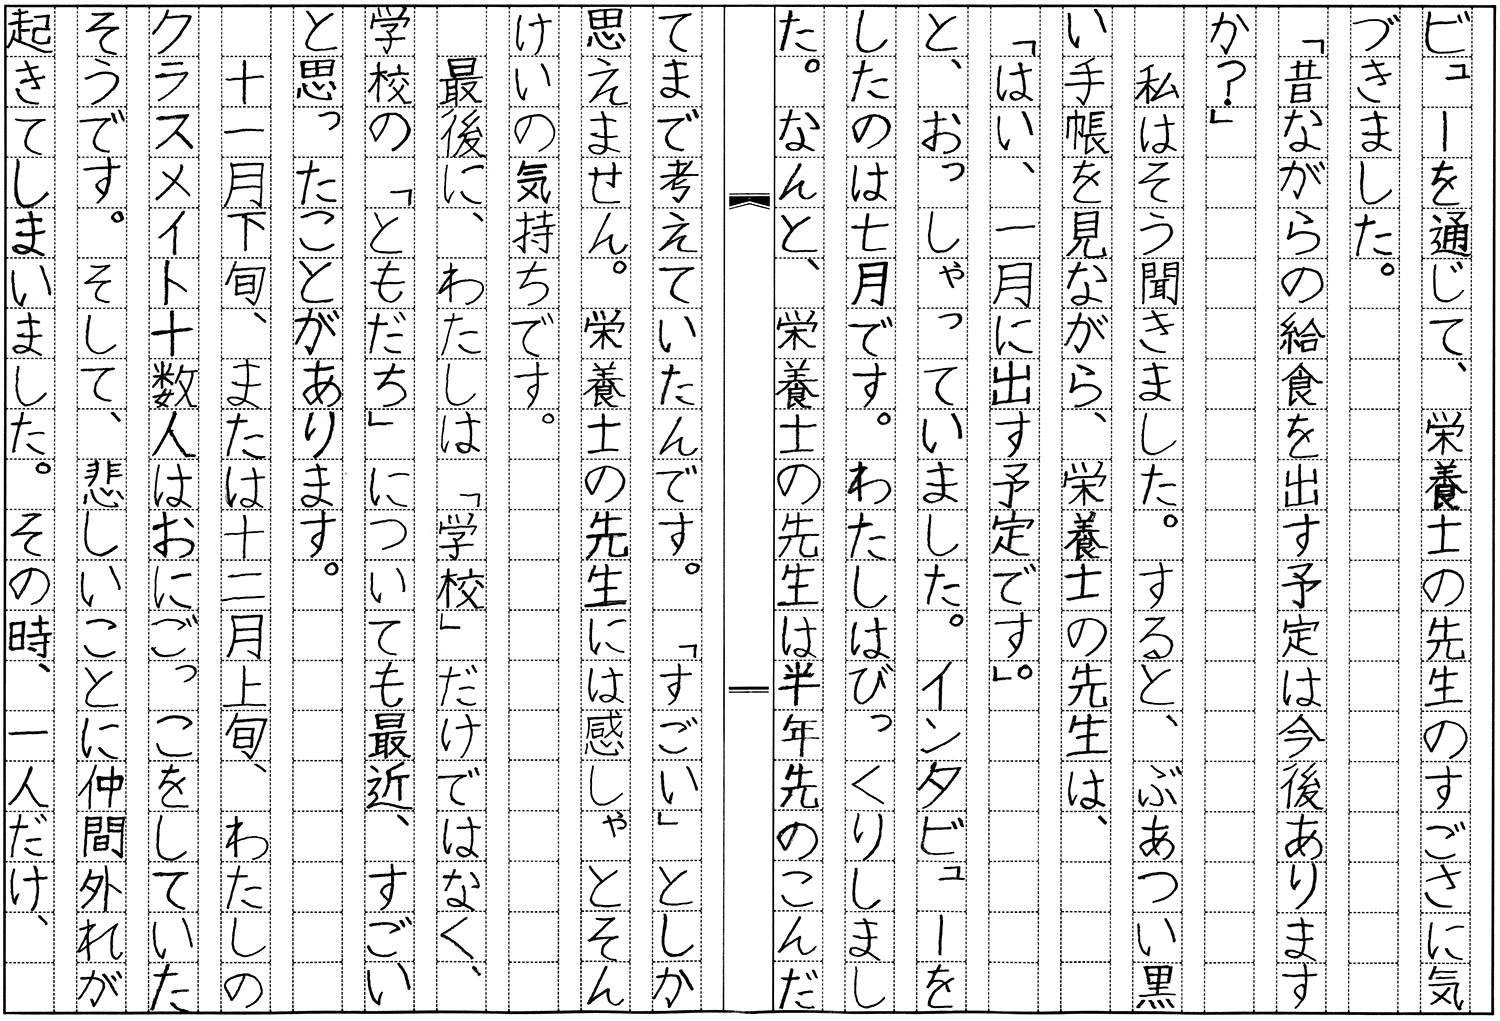 ビューを通じて、栄養士の先生のすごさに気
づきました。
「昔ながらの給食を出す予定は今後あります
か？」
　私はそう聞きました。すると、ぶあつい黒
い手帳を見ながら、栄養士の先生は、
「はい、一月に出す予定です」。
と、おっしゃっていました。インタビューを
したのは七月です。わたしはびっくりしまし
た。なんと、栄養士の先生は半年先のこんだ
てまで考えていたんです。「すごい」としか
思えません。栄養士の先生には感しゃとそん
けいの気持ちです。
　最後に、わたしは「学校」だけではなく、
学校の「ともだち」についても最近、すごい
と思ったことがあります。
　十一月下旬、または十二月上旬、わたしの
クラスメイト十数人はおにごっこをしていた
そうです。そして、悲しいことに仲間外れが
起きてしまいました。その時、一人だけ、